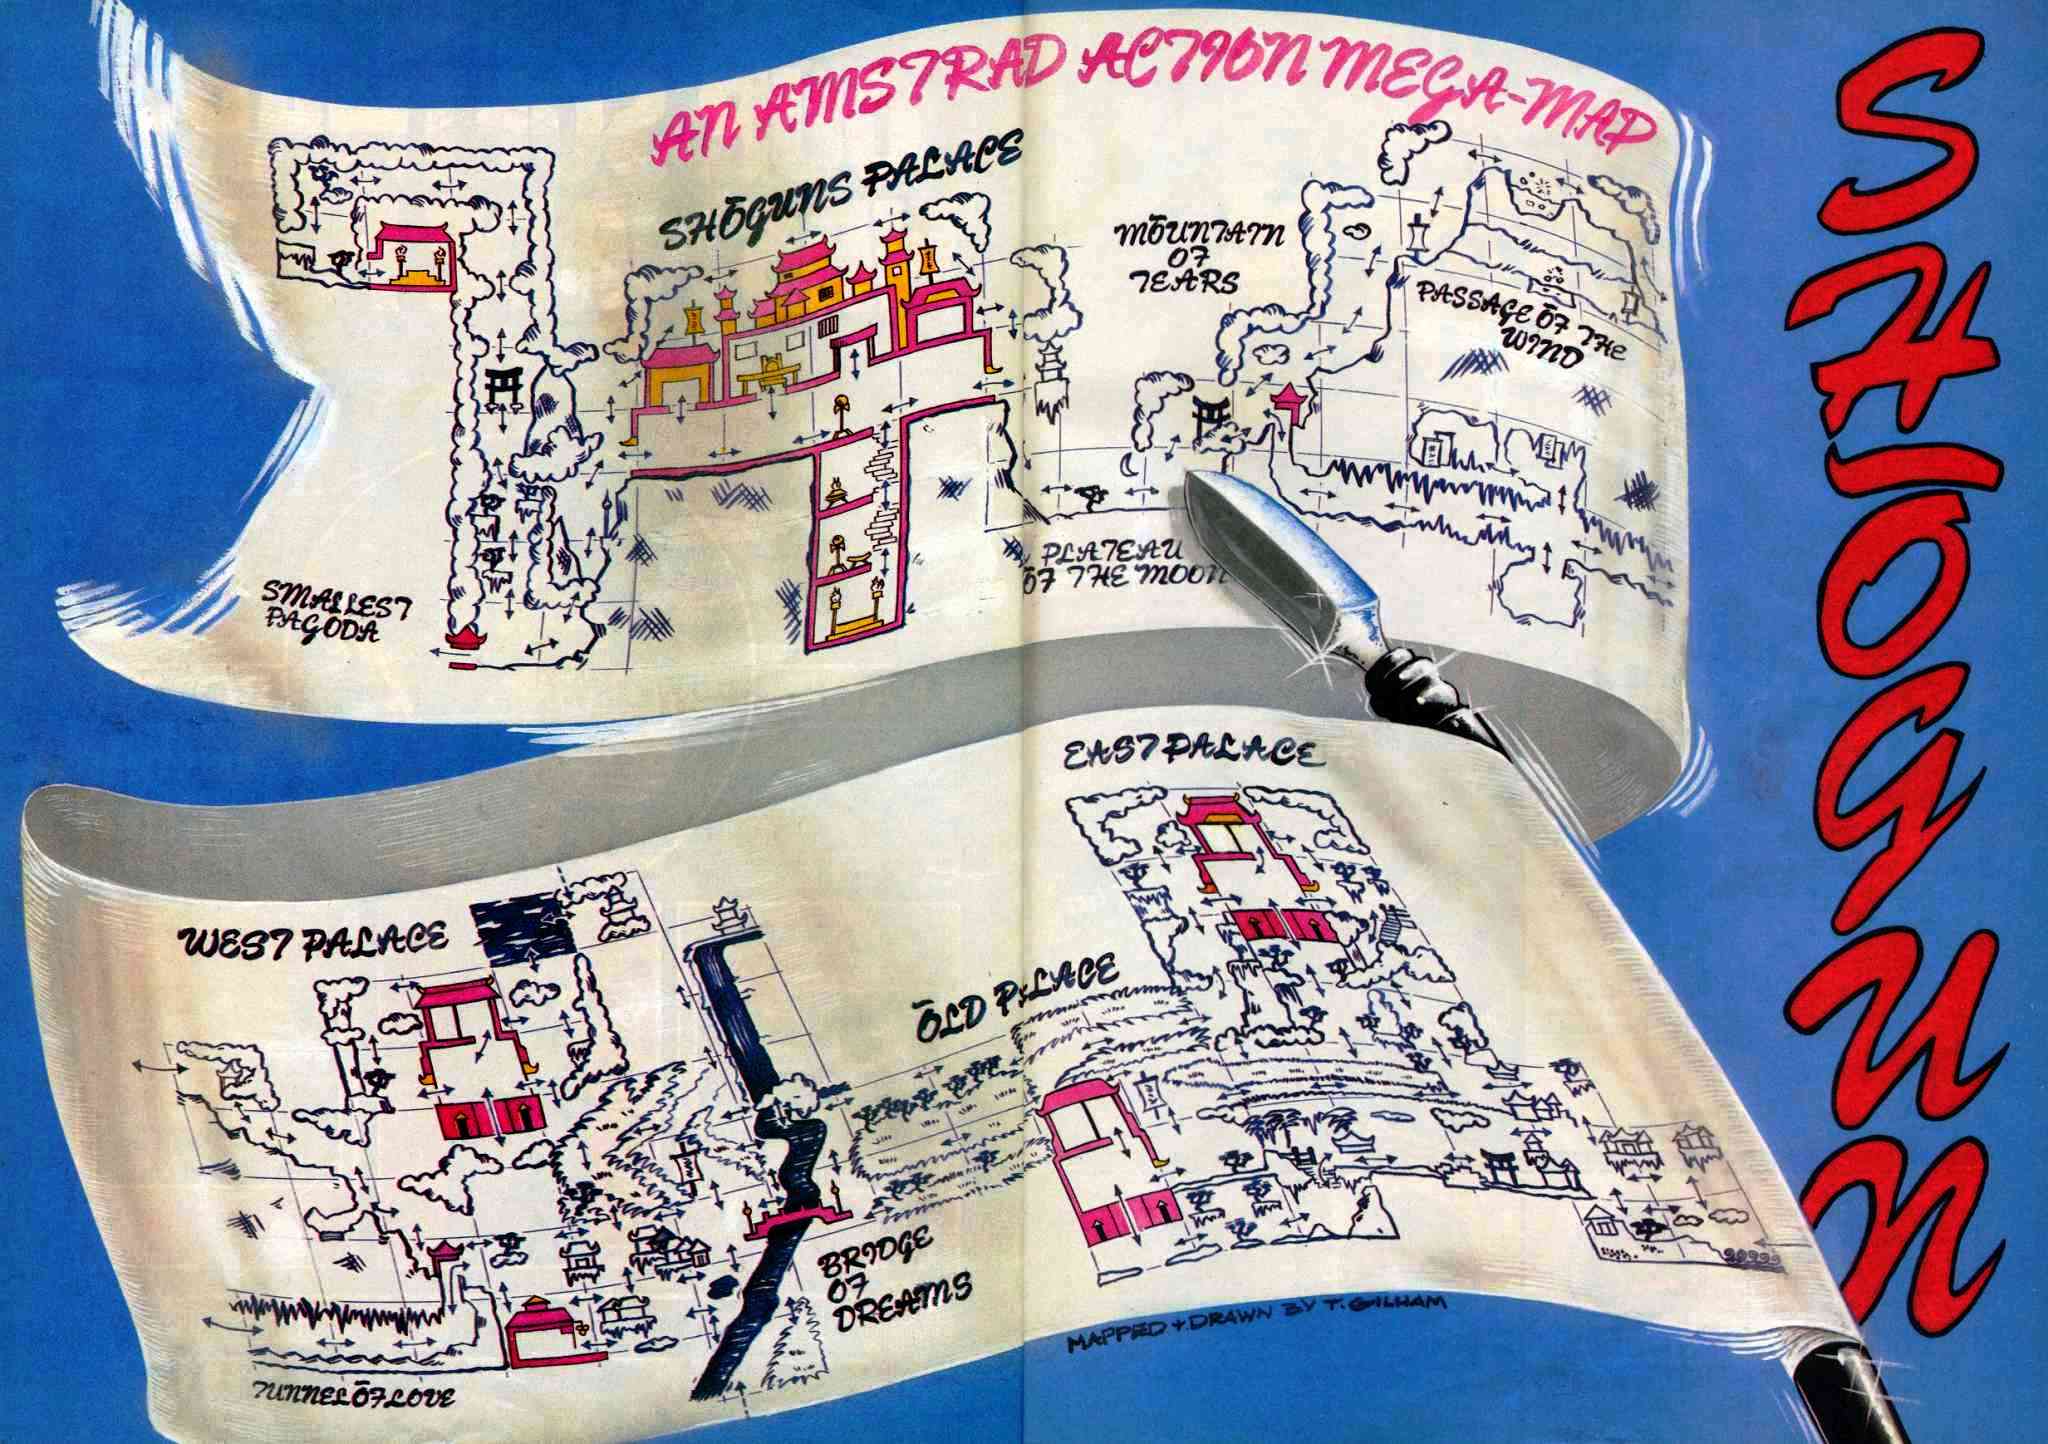 AN AMSTRAD ACTION MEGA-MAP
SHŌGUNS PALACE
MŌUNTAIN
OF
TEARS
PASSAGE OF THE
WIND
SMALLEST
PAGODA
PLATEAU
OF THE MOON
SHOGUN
EAST PALACE
WEST PALACE
ŌLD PALACE
BRIDGE
OF
DREAMS
TUNNEL ŌF LOVE
MAPPED + DRAWN BY T. GILHAM